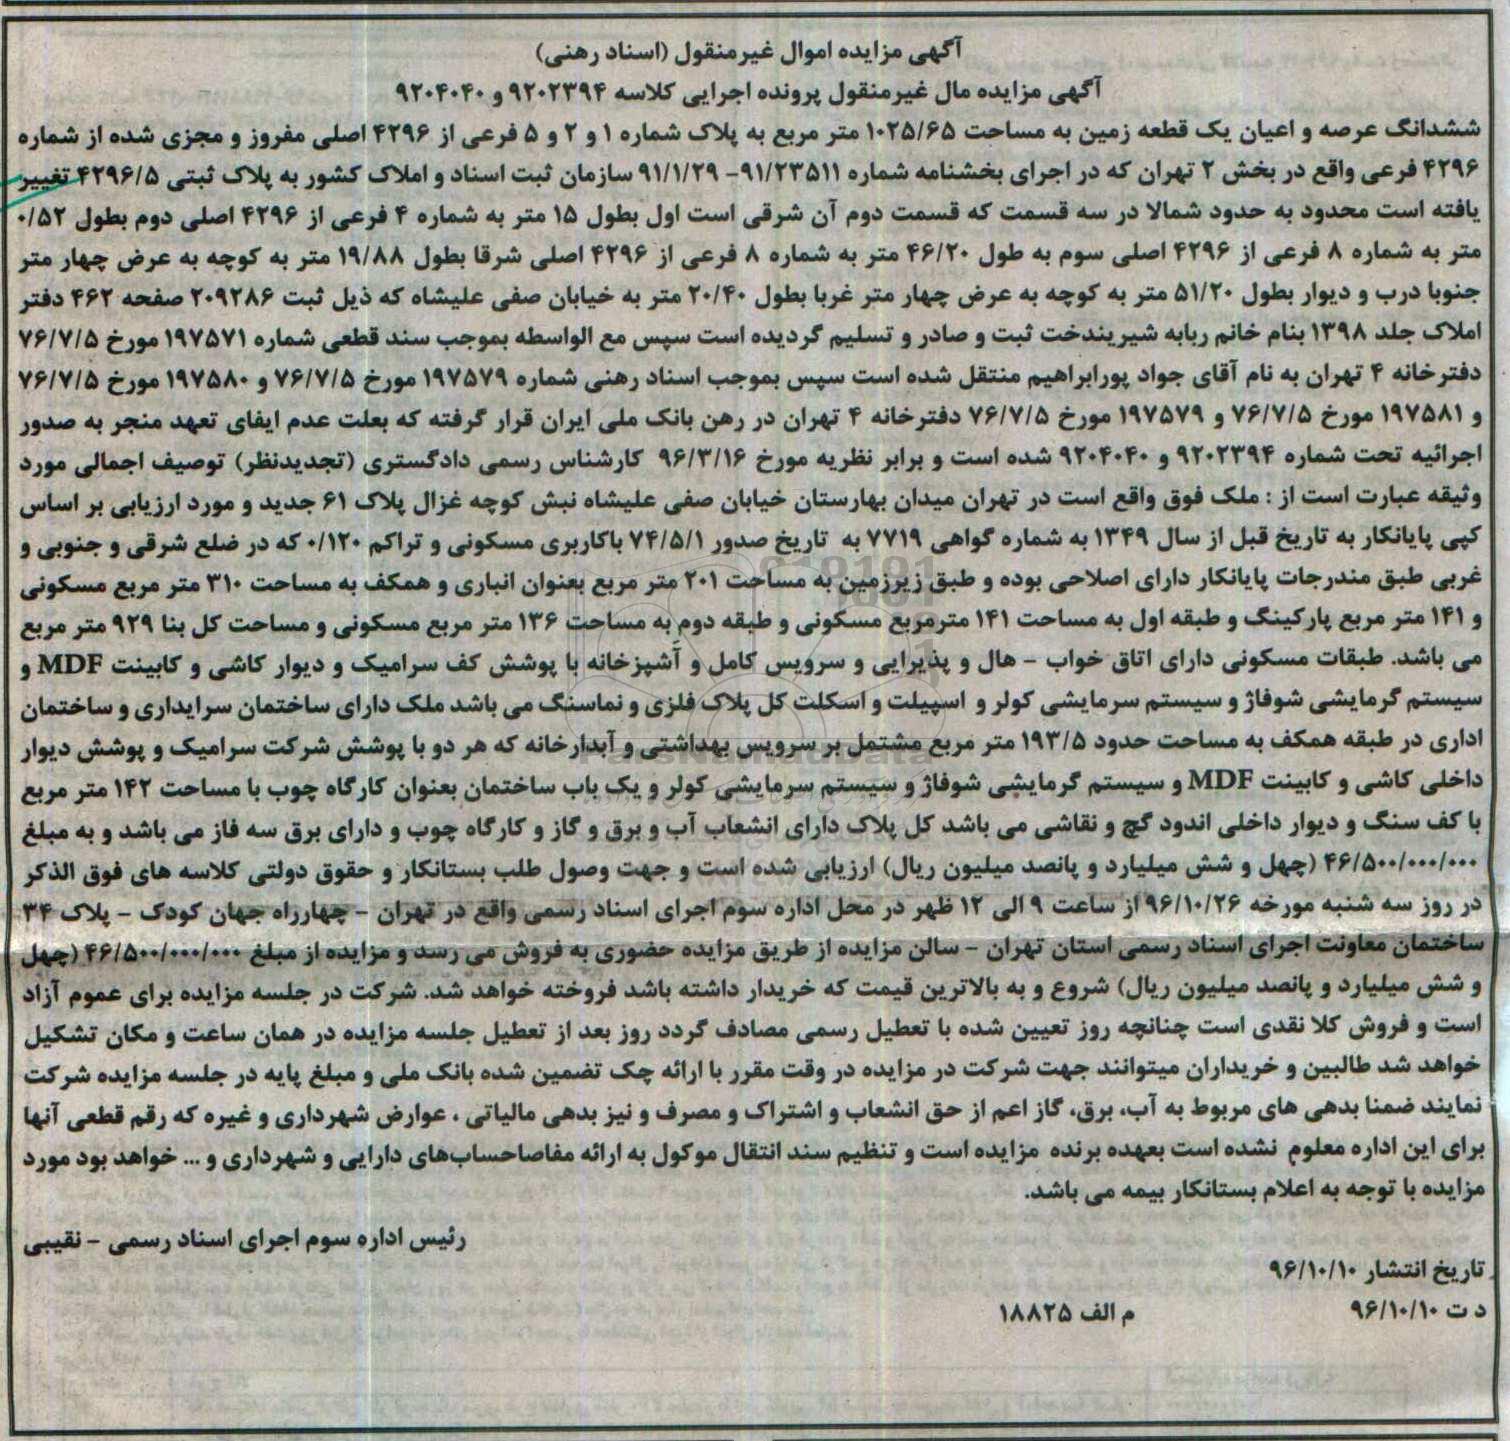 آگهی مزایده اموال غیرمنقول (اسناد رهنی)
آگهی مزایده مال غیرمنقول پرونده اجرایی کلاسه ۹۲۰۲۳۹۴ و ۹۲۰۴۰۴۰
ششدانگ عرصه و اعیان یک قطعه زمین به مساحت ۱۰۲۵/۶۵ متر مربع به پلاک شماره ۱ و ۲ و ۵ فرعی از ۴۲۹۶ اصلی مفروز و مجزی شده از شماره
۴۲۹۶ فرعی واقع در بخش ۲ تهران که در اجرای بخشنامه شماره ۹۱/۲۳۵۱۱- ۹۱/۱/۲۹ سازمان ثبت اسناد و املاک کشور به پلاک ثبتی ۴۲۹۶/۵ تغییر
یافته است محدود به حدود شمالا در سه قسمت که قسمت دوم آن شرقی است اول بطول ۱۵ متر به شماره ۴ فرعی از ۴۲۹۶ اصلی دوم بطول ۰/۵۲
متر به شماره ۸ فرعی از ۴۲۹۶ اصلی سوم به طول ۴۶/۲۰ متر به شماره ۸ فرعی از ۴۲۹۶ اصلی شرقا بطول ۱۹/۸۸ متر به کوچه به عرض چهار متر
جنوبا درب و دیوار بطول ۵۱/۲۰ متر به کوچه به عرض چهار متر غربا بطول ۲۰/۴۰ متر به خیابان صفی علیشاه که ذیل ثبت ۲۰۹۲۸۶ صفحه ۴۶۲ دفتر
املاک جلد ۱۳۹۸ بنام خانم ربابه شیریندخت ثبت و صادر و تسلیم گردیده است سپس مع الواسطه بموجب سند قطعی شماره ۱۹۷۵۷۱ مورخ ۷۶/۷/۵
دفترخانه ۴ تهران به نام آقای جواد پورابراهیم منتقل شده است سپس بموجب اسناد رهنی شماره ۱۹۷۵۷۹ مورخ ۷۶/۷/۵ و ۱۹۷۵۸۰ مورخ ۷۶/۷/۵
و ۱۹۷۵۸۱ مورخ ۷۶/۷/۵ و ۱۹۷۵۷۹ مورخ ۷۶/۷/۵ دفترخانه ۴ تهران در رهن بانک ملی ایران قرار گرفته که بعلت عدم ایفای تعهد منجر به صدور
اجرائیه تحت شماره ۹۲۰۲۳۹۴ و ۹۲۰۴۰۴۰ شده است و برابر نظریه مورخ ۹۶/۳/۱۶ کارشناس رسمی دادگستری (تجدیدنظر) توصیف اجمالی مورد
وثیقه عبارت است از : ملک فوق واقع است در تهران میدان بهارستان خیابان صفی علیشاه نبش کوچه غزال پلاک ۶۱ جدید و مورد ارزیابی بر اساس
کپی پایانکار به تاریخ قبل از سال ۱۳۴۹ به شماره گواهی ۷۷۱۹ به تاریخ صدور ۷۴/۵/۱ باکاربری مسکونی و تراکم ۰/۱۲۰ که در ضلع شرقی و جنوبی و
غربی طبق مندرجات پایانکار دارای اصلاحی بوده و طبق زیرزمین به مساحت ۲۰۱ متر مربع بعنوان انباری و همکف به مساحت ۳۱۰ متر مربع مسکونی
و ۱۴۱ متر مربع پارکینگ و طبقه اول به مساحت ۱۴۱ مترمربع مسکونی و طبقه دوم به مساحت ۱۳۶ متر مربع مسکونی و مساحت کل بنا ۹۲۹ متر مربع
می باشد. طبقات مسکونی دارای اتاق خواب - هال و پذیرایی و سرویس کامل و آشپزخانه با پوشش کف سرامیک و دیوار کاشی و کابینت MDF و
سیستم گرمایشی شوفاژ و سیستم سرمایشی کولر و اسپیلت و اسکلت کل پلاک فلزی و نماسنگ می باشد ملک دارای ساختمان سرایداری و ساختمان
اداری در طبقه همکف به مساحت حدود ۱۹۳/۵ متر مربع مشتمل بر سرویس بهداشتی و آبدارخانه که هر دو با پوشش شرکت سرامیک و پوشش دیوار
داخلی کاشی و کابینت MDF و سیستم گرمایشی شوفاژ و سیستم سرمایشی کولر و یک باب ساختمان بعنوان کارگاه چوب با مساحت ۱۴۲ متر مربع
با کف سنگ و دیوار داخلی اندود گچ و نقاشی می باشد کل پلاک دارای انشعاب آب و برق و گاز و کارگاه چوب و دارای برق سه فاز می باشد و به مبلغ
۴۶/۵۰۰/۰۰۰/۰۰۰ (چهل و شش میلیارد و پانصد میلیون ریال) ارزیابی شده است و جهت وصول طلب بستانکار و حقوق دولتی کلاسه های فوق الذکر
در روز سه شنبه مورخه ۹۶/۱۰/۲۶ از ساعت ۹ الی ۱۲ ظهر در محل اداره سوم اجرای اسناد رسمی واقع در تهران - چهارراه جهان کودک - پلاک ۳۴
ساختمان معاونت اجرای اسناد رسمی استان تهران - سالن مزایده از طریق مزایده حضوری به فروش می رسد و مزایده از مبلغ ۴۶/۵۰۰/۰۰۰/۰۰۰ (چهل
و شش میلیارد و پانصد میلیون ریال) شروع و به بالاترین قیمت که خریدار داشته باشد فروخته خواهد شد. شرکت در جلسه مزایده برای عموم آزاد
است و فروش کلا نقدی است چنانچه روز تعیین شده با تعطیل رسمی مصادف گردد روز بعد از تعطیل جلسه مزایده در همان ساعت و مکان تشکیل
خواهد شد طالبین و خریداران میتوانند جهت شرکت در مزایده در وقت مقرر با ارائه چک تضمین شده بانک ملی و مبلغ پایه در جلسه مزایده شرکت
نمایند ضمنا بدهی های مربوط به آب، برق، گاز اعم از حق انشعاب و اشتراک و مصرف و نیز بدهی مالیاتی ، عوارض شهرداری و غیره که رقم قطعی آنها
برای این اداره معلوم نشده است بعهده برنده مزایده است و تنظیم سند انتقال موکول به ارائه مفاصاحساب‌های دارایی و شهرداری و ... خواهد بود مورد
مزایده با توجه به اعلام بستانکار بیمه می باشد.
رئیس اداره سوم اجرای اسناد رسمی - نقیبی
تاریخ انتشار ۹۶/۱۰/۱۰
د ت ۹۶/۱۰/۱۰ م الف ۱۸۸۲۵